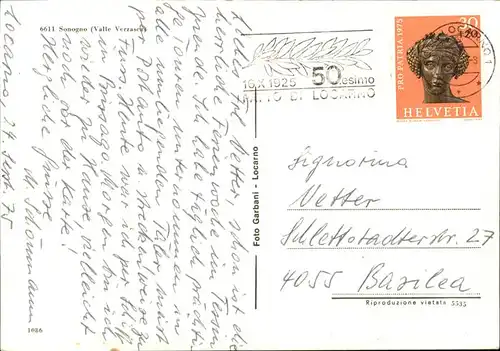 6611 Sonogno (Valle Verzasca)
Locarno, 24. Sept. 75
Vetter, schon ist die
herrliche Ferienwoche im Tessin
Ich habe täglich
Touren unternommen in
alle umliegenden Täler meist
p. Postauto
Heute war ich per Schiff
in Brissago. Morgen bin ich
wieder zu Hause, vielleicht
noch vor der Karte!
Herzliche Grüsse
1086
Foto Garbani - Locarno
16.X.1925 50.esimo
PATTO DI LOCARNO
LOCARNO 1
PRO PATRIA 1975
30
+20
HELVETIA
Signorina
Vetter
Schlettstadterstr. 27
4055 Basilea
Riproduzione vietata 5535